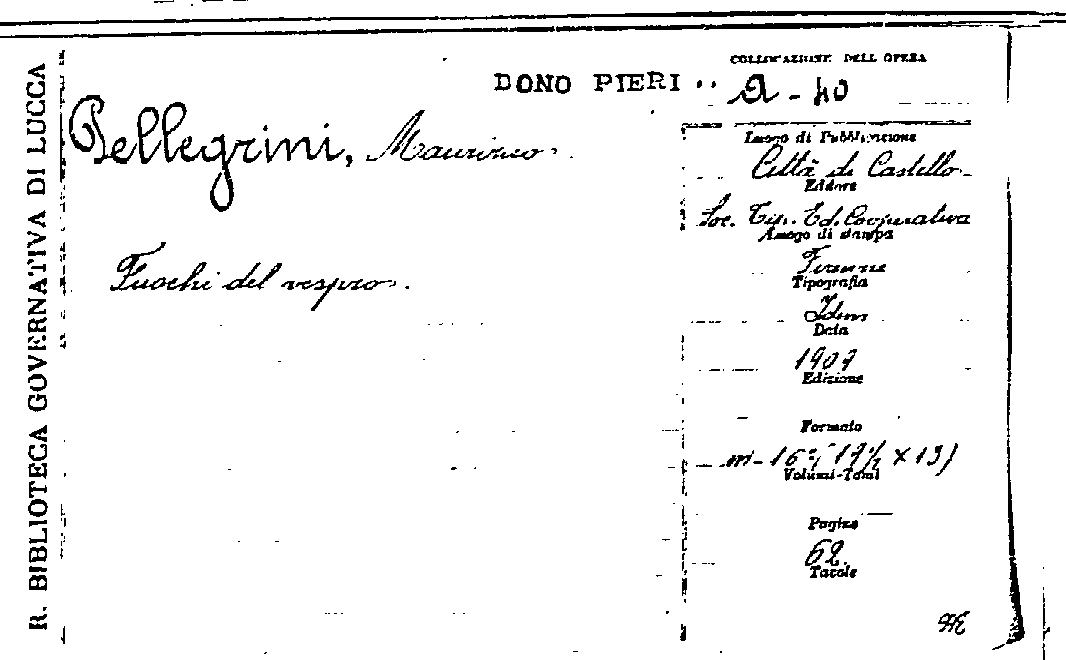 R. BIBLIOTECA GOVERNATIVA DI LUCCA
DONO PIERI
COLLOCAZIONE DELL'OPERA
A - 40
Pellegrini,
Fuochi del vespro.
Luogo di Pubblicazione
Città di Castello
Editore
Soc. Tip. Ed. Cooperativa
Luogo di stampa
Firenze
Tipografia
Idem
Data
Edizione
Formato
in-16° (17½ x 13)
Volumi-Tomi
Pagine
62
Tavole